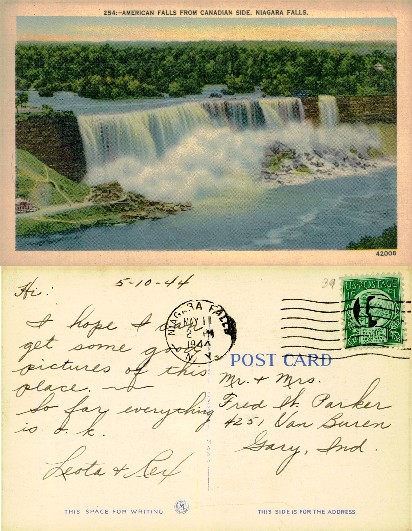 254:-AMERICAN FALLS FROM CANADIAN SIDE, NIAGARA FALLS.
42008
5-10-44
Hi:
I hope I can
get some good
pictures of this
place. —
So far everything
is o.k.
Leota & Rex
39
NIAGARA FALLS
MAY 11
1944
N.Y.
U.S. POSTAGE
1¢
POST CARD
Mr. & Mrs.
Fred W. Parker
4251 Van Buren
Gary, Ind.
THIS SPACE FOR WRITING
THIS SIDE IS FOR THE ADDRESS